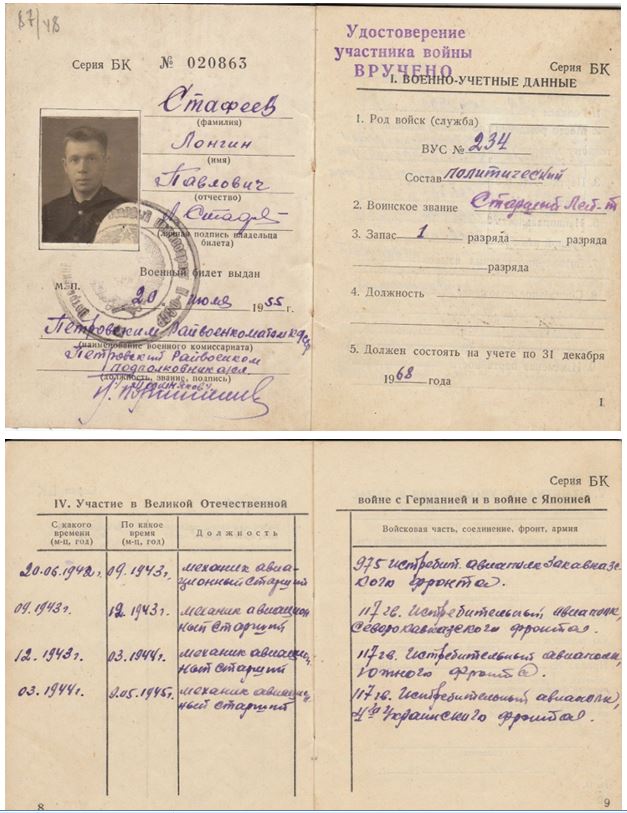 87/48
Серия БК № 020863
Стафеев
(фамилия)
Лонгин
(имя)
Павлович
(отчество)
(личная подпись владельца
билета)
Военный билет выдан
М. П.
20 июля 1955 г.
Петровским Райвоенкоматом
(наименование военного комиссариата)
Петровский Райвоенком
подполковник
(должность, звание, подпись)
Удостоверение
участника войны
ВРУЧЕНО
Серия БК
I. ВОЕННО-УЧЕТНЫЕ ДАННЫЕ
1. Род войск (служба)
ВУС № 234
Состав политический
2. Воинское звание Старший Лей-т
3. Запас 1 разряда разряда
разряда
4. Должность
5. Должен состоять на учете по 31 декабря
1968 года
1
Серия БК
IV. Участие в Великой Отечественной войне с Германией и в войне с Японией
С какого
времени
(м-ц, год)
По какое
время
(м-ц, год)
Должность
Войсковая часть, соединение, фронт, армия
20.06.1942г. 09.1943г. механик авиа- 975 истребит. авиаполк Закавказс
ционный старший кого фронта.
09.1943г. 12.1943г. механик авиацион 117 гв. Истребительный авиаполк,
ный старший Северокавказского фронта.
12.1943г. 03.1944г. механик авиацион 117 гв. Истребительный авиаполк,
ный старший Южного фронта.
03.1944г. 9.05.1945г. механик авиацион 117 гв. Истребительный авиаполк,
ный старший 4го Украинского фронта.
8
9